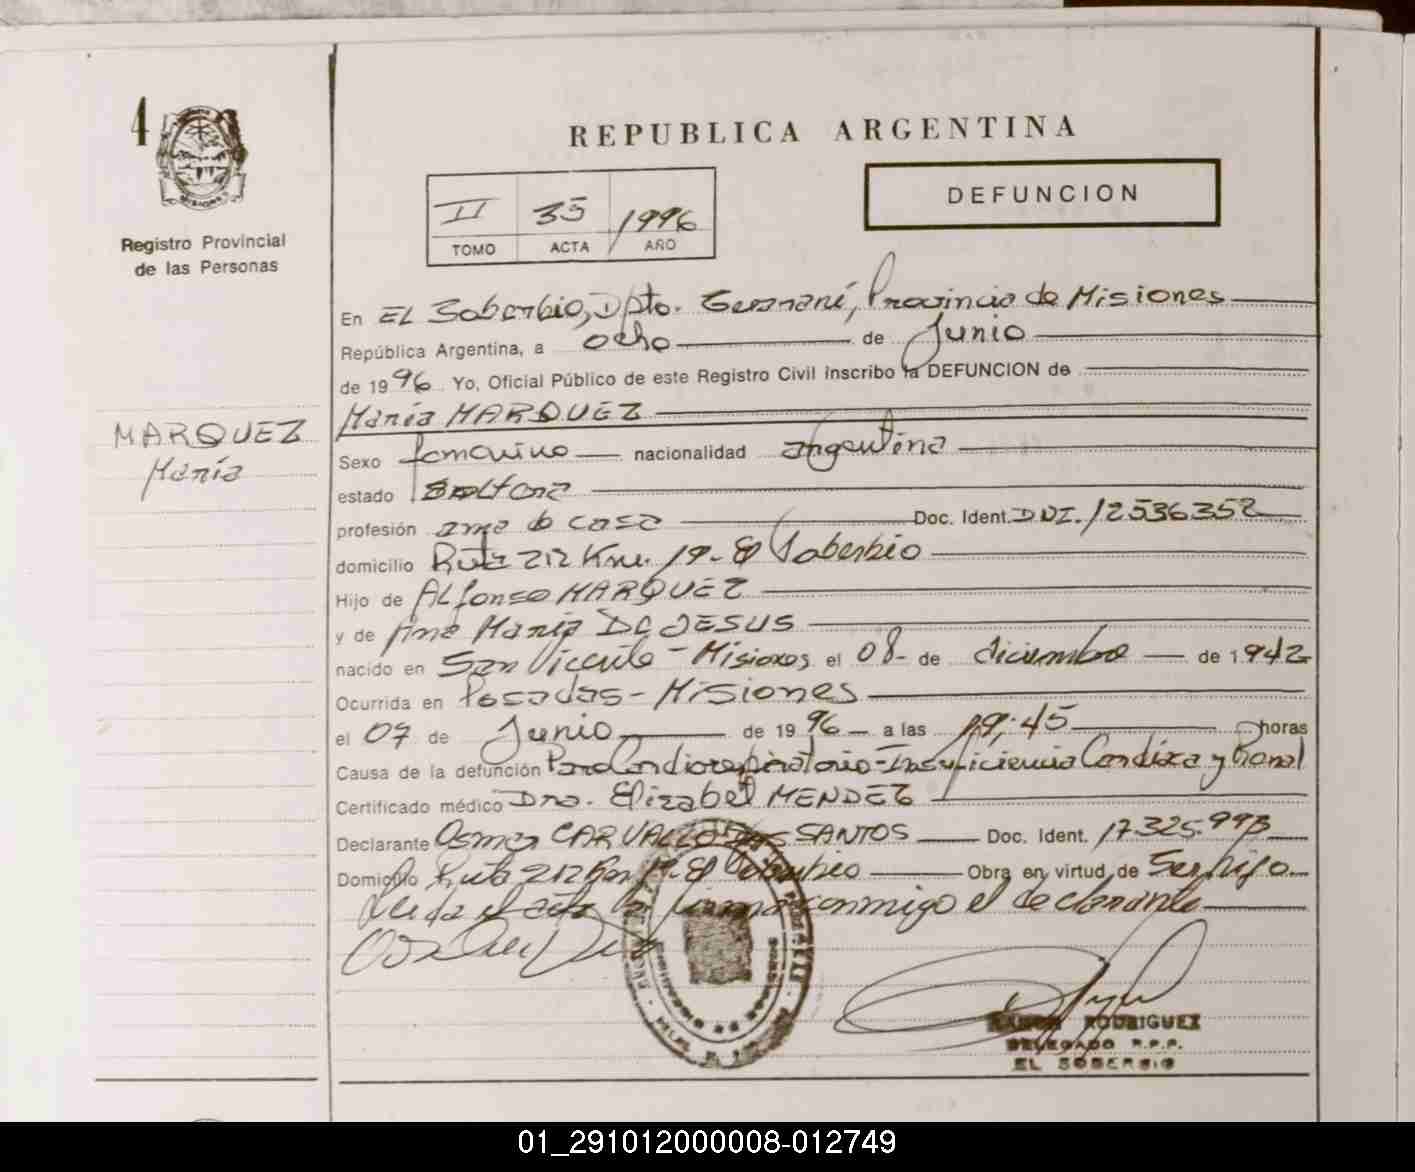 4
Registro Provincial
de las Personas
REPUBLICA ARGENTINA
DEFUNCION
II 35 1996
TOMO ACTA AÑO
En EL Soberbio, Dpto. Guaraní, Provincia de Misiones
República Argentina, a ocho de Junio
de 1996 Yo, Oficial Público de este Registro Civil inscribo la DEFUNCION de
María MARQUEZ
MARQUEZ
María
Sexo femenino nacionalidad argentina
estado Soltera
profesión ama de casa Doc. Ident. DNI. 12536352
domicilio Ruta 212 Km. 19- El Soberbio
Hijo de ALfonso MARQUEZ
y de Ana María DE JESUS
nacido en San Vicente - Misiones el 08- de diciembre de 1942
Ocurrida en Posadas - Misiones
el 07 de Junio de 1996 a las 19:45 horas
Causa de la defunción Paro Cardiorespiratorio - Insuficiencia Cardíaca y Renal
Certificado médico Dra. Elizabet MENDEZ
Declarante Osmar CARVALLO DOS SANTOS Doc. Ident. 17.325.993
Domicilio Ruta 212 El Soberbio Obra en virtud de Ser hijo.
Leida el acta la firma conmigo el declarante
RAMON RODRIGUEZ
DELEGADO R.P.P.
EL SOBERBIO
01_291012000008-012749